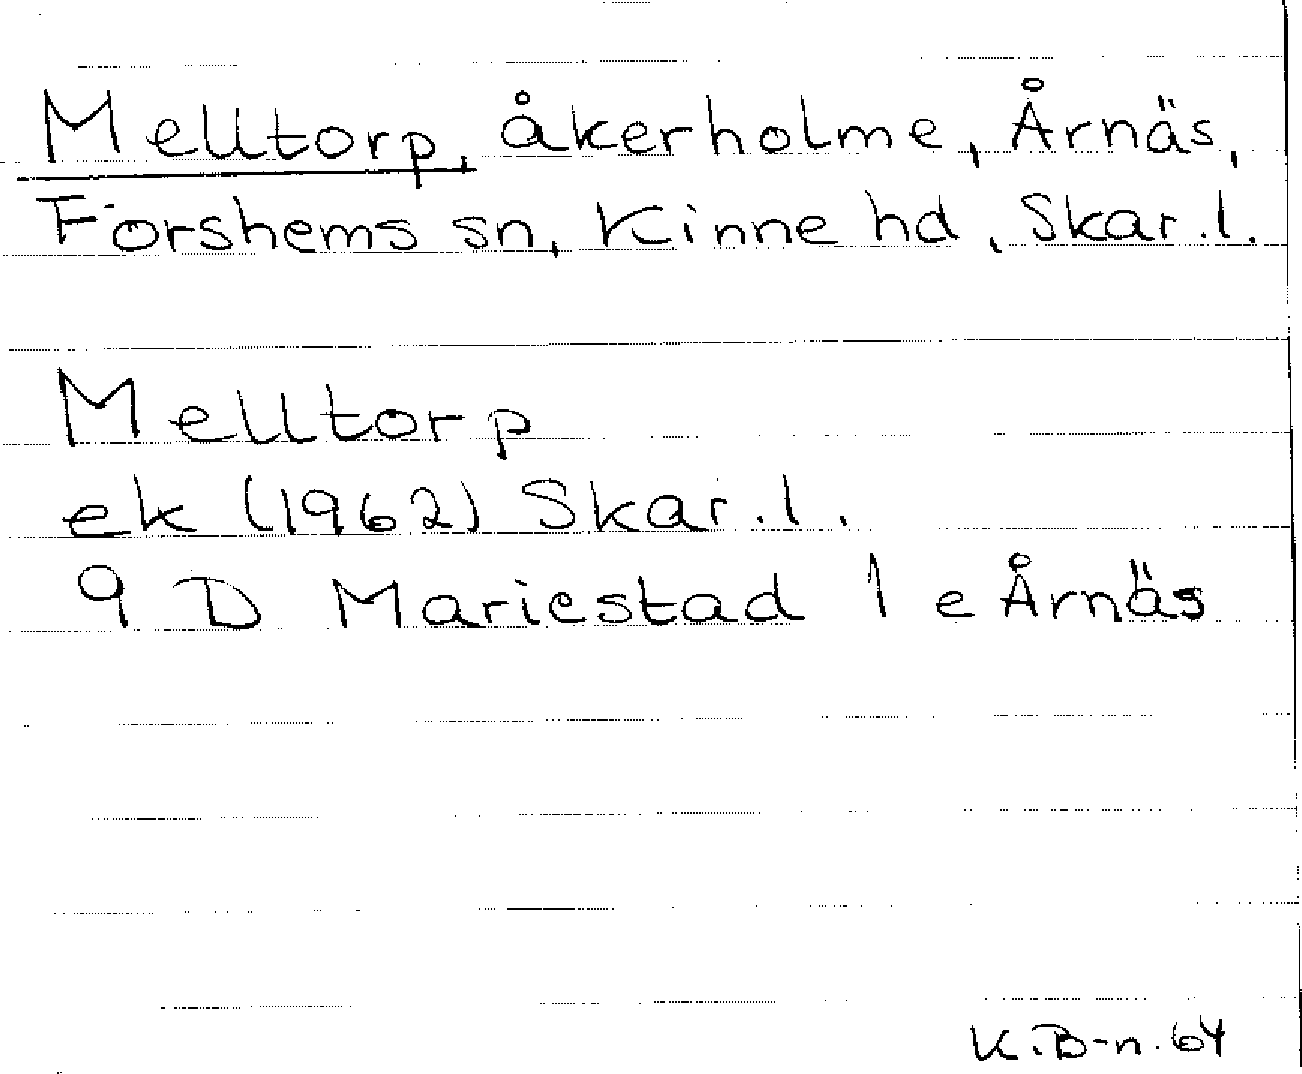 Melltorp, åkerholme, Årnäs,
Forshems sn, Kinne hd, Skar.l.
Melltorp
ek (1962) Skar.l.
9 D Mariestad 1 e Årnäs
K.B-n. 64